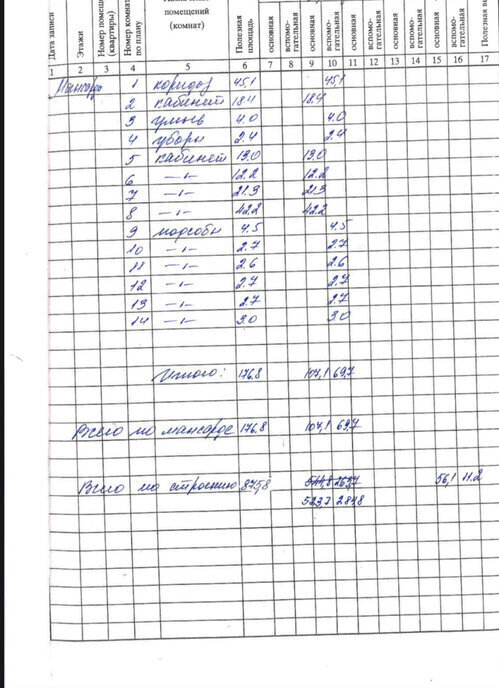 Дата записи
Этажи
Номер помещ
(квартиры)
Номер комнат
по плану
помещений
(комнат)
Полезная
площадь
основная
вспомо-
гательная
основная
вспомо-
гательная
основная
вспомо-
гательная
основная
вспомо-
гательная
основная
вспомо-
гательная
Полезная вы
1 2 3 4 5 6 7 8 9 10 11 12 13 14 15 16 17
Мансарда 1 коридор 45,1 45,1
2 кабинет 18.4 18.4
3 умыв 4.0 4.0
4 уборн 2.4 2.4
5 кабинет 13.0 13.0
6 —ı— 12.2 12.2
7 —ı— 21.3 21.3
8 —ı— 42.2 42.2
9 подсобн 4.5 4.5
10 —ı— 2.7 2.7
11 —ı— 2.6 2.6
12 —ı— 2.7 2.7
13 —ı— 2.7 2.7
14 —ı— 3.0 3.0
Итого: 176.8 107,1 69,7
Всего по мансарде 176,8 107,1 69,7
Всего по строению 875,8 56,1 11.2
523,7 284,8